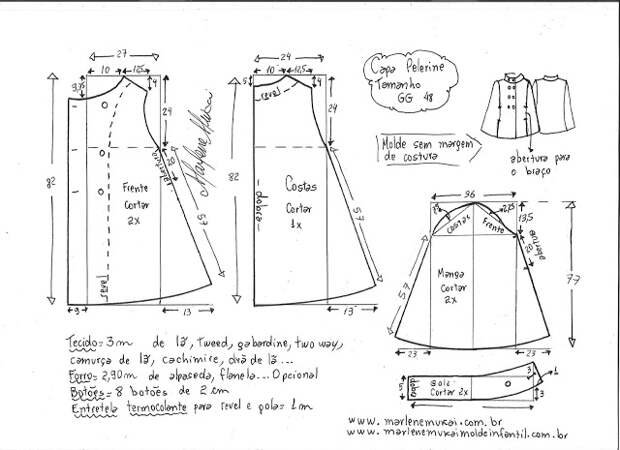 27
10
12,5
9,75
4
24
82
abertura
20
Frente
Cortar
2x
Revel
57
9
13
Marlene Mukai
24
10
12,5
5
4
revel
24
82
Costas
Cortar
1x
dobra
57
13
Capa Pelerine
Tamanho
GG 48
Molde sem margem
de costura
abertura para
o braço
36
Costas
Frente
13,5
20
abertura
57
77
Manga
Cortar
2x
23
23
5
dobra
Gola
Cortar 2x
3
1
3
Tecido= 3m de lã, tweed, gabardine, two way,
camurça de lã, cachimire, drã de lã...
Forro= 2,90m de alpaseda, flanela... Opcional
Botões= 8 botões de 2 cm
Entretela termocolante para revel e gola= 1m
www.marlenemukai.com.br
www.marlenemukaimoldeinfantil.com.br